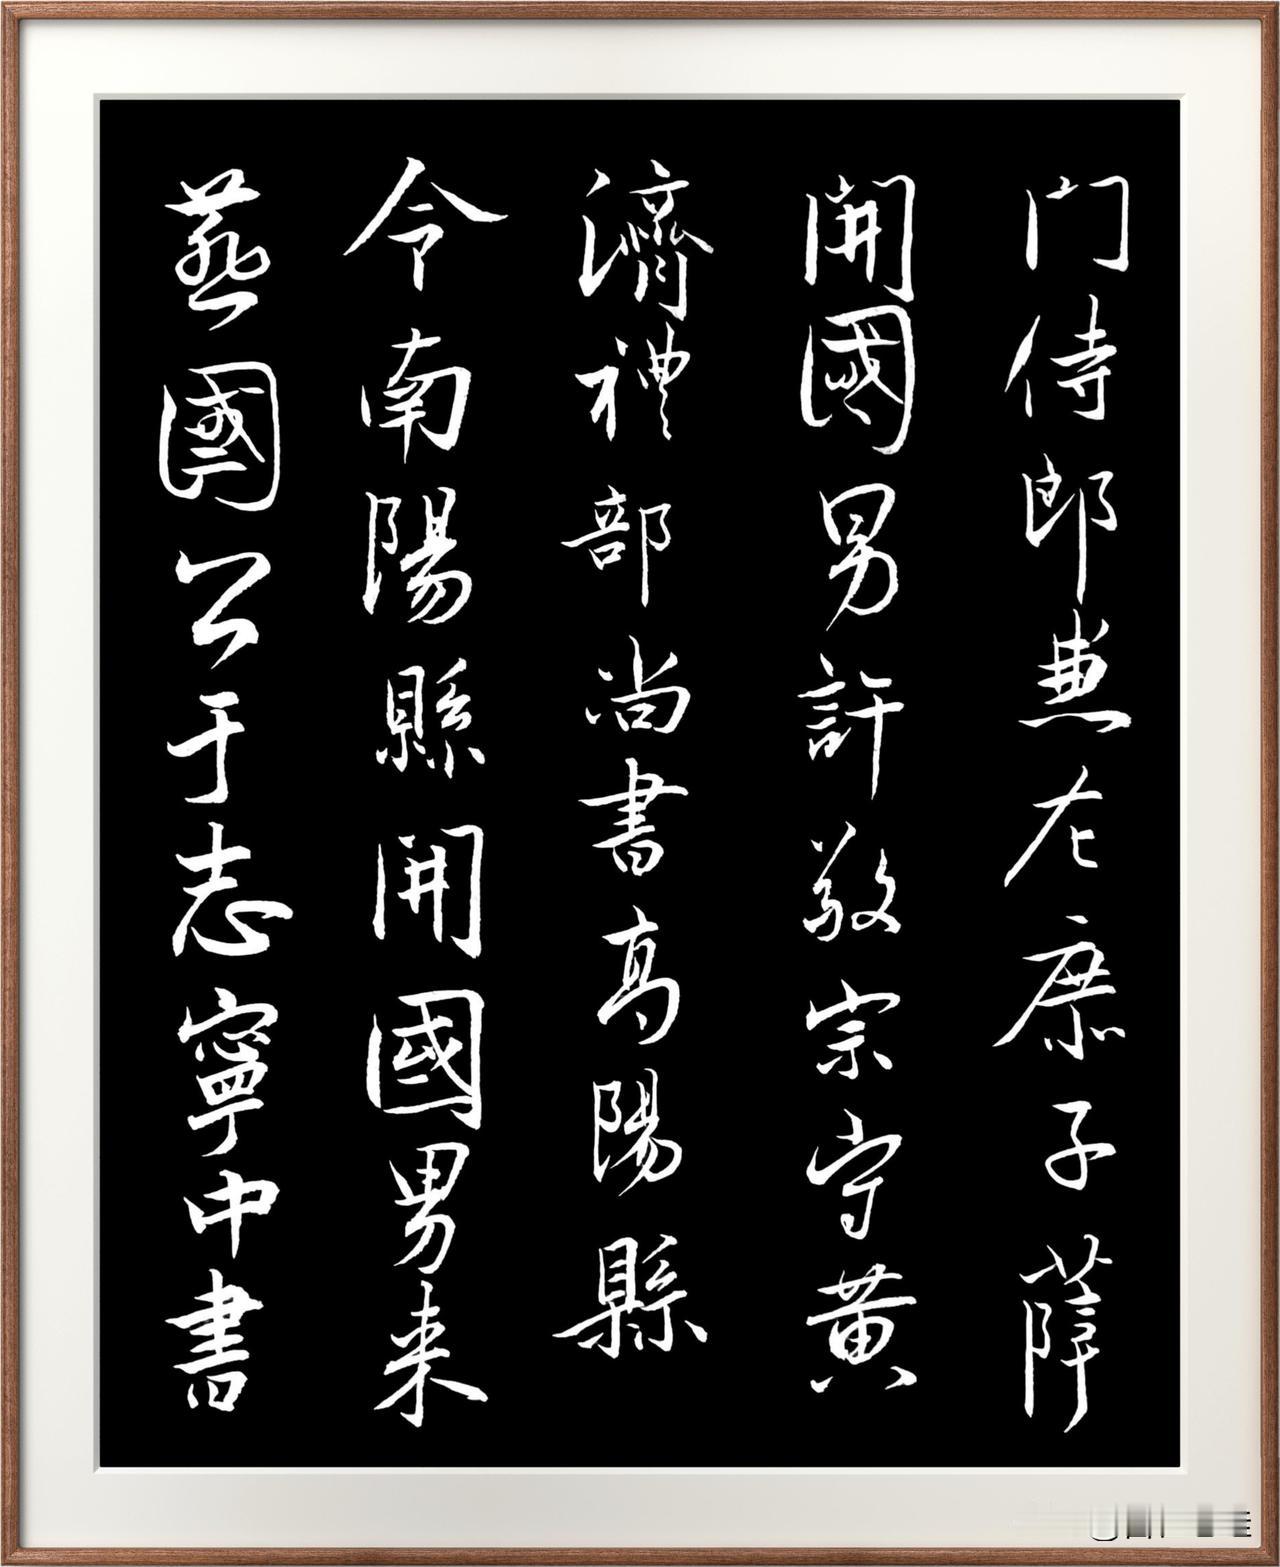 燕國公于志寧中書
令南陽縣開國男来
濟禮部尚書高陽縣
開國男許敬宗守黄
门侍郎兼左庶子薛